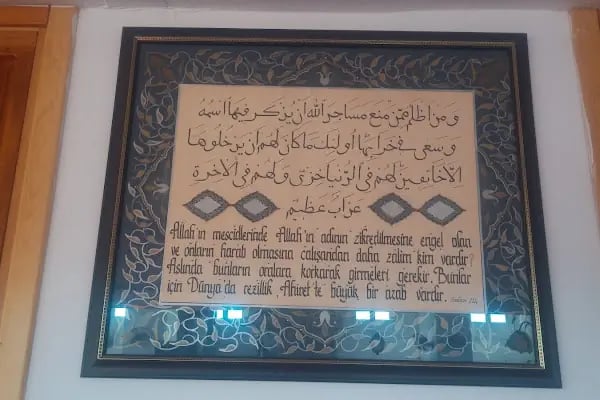 ومن اظلم ممن منع مساجد الله ان يذكر فيها اسمه
وسعى في خرابها اولئك ما كان لهم ان يدخلوها
الا خائفين لهم في الدنيا خزي ولهم في الاخرة
عذاب عظيم
Allah'ın mescidlerinde Allah'ın adının zikredilmesine engel olan
ve onların harab olmasına çalışandan daha zalim kim vardır?
Aslında bunların oralara korkarak girmeleri gerekir. Bunlar
için Dünya'da rezillik, Ahiret'te büyük bir azab vardır.